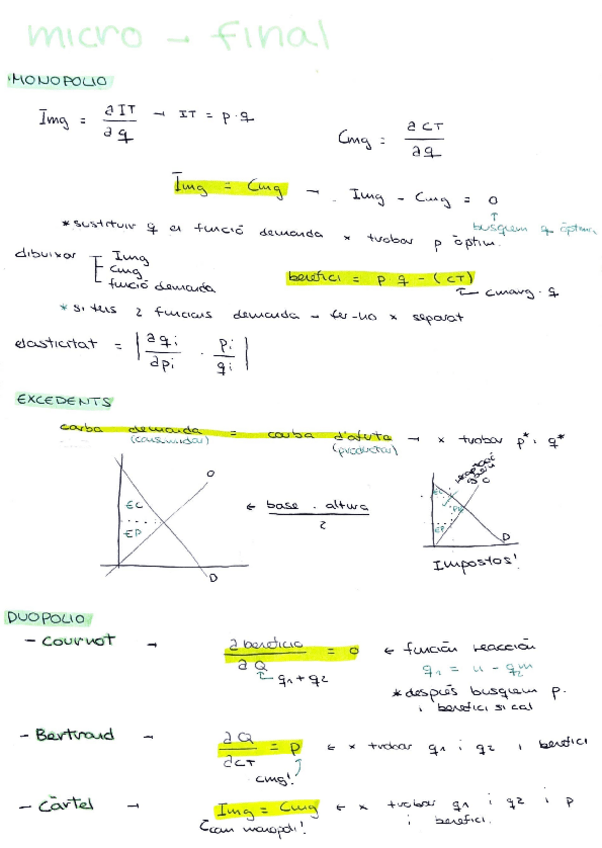 micro - final
MONOPOLIO
Img = ∂IT / ∂q → IT = p·q
Cmg = ∂CT / ∂q
Img = Cmg → Img - Cmg = 0
↑ busquem q òptim
*sustituir q en funció demanda x trobar p òptim.
dibuixar
Img
Cmg
funció demanda
benefici = p q - (CT)
cmarg · q
*si tens 2 funcions demanda → fer-ho x separat
elasticitat = | ∂qi / ∂pi · pi / qi |
EXCEDENTS
corba demanda = corba d'oferta → x trobar p* i q*
(consumidor) (productor)
O
EC
EP
D
← base · altura / 2
EC
EP
D
Impostos!
DUOPOLIO
- Cournot → ∂ beneficio / ∂Q = 0 ← función reacción
q1 + q2
*después busquem p.
i benefici si cal
- Bertrand → ∂Q / ∂CT = p ← x trobar q1 i q2 i benefici
cmg!
- Càrtel → Img = Cmg ← x trobar q1 i q2 i p
i benefici.
Com monopoli!